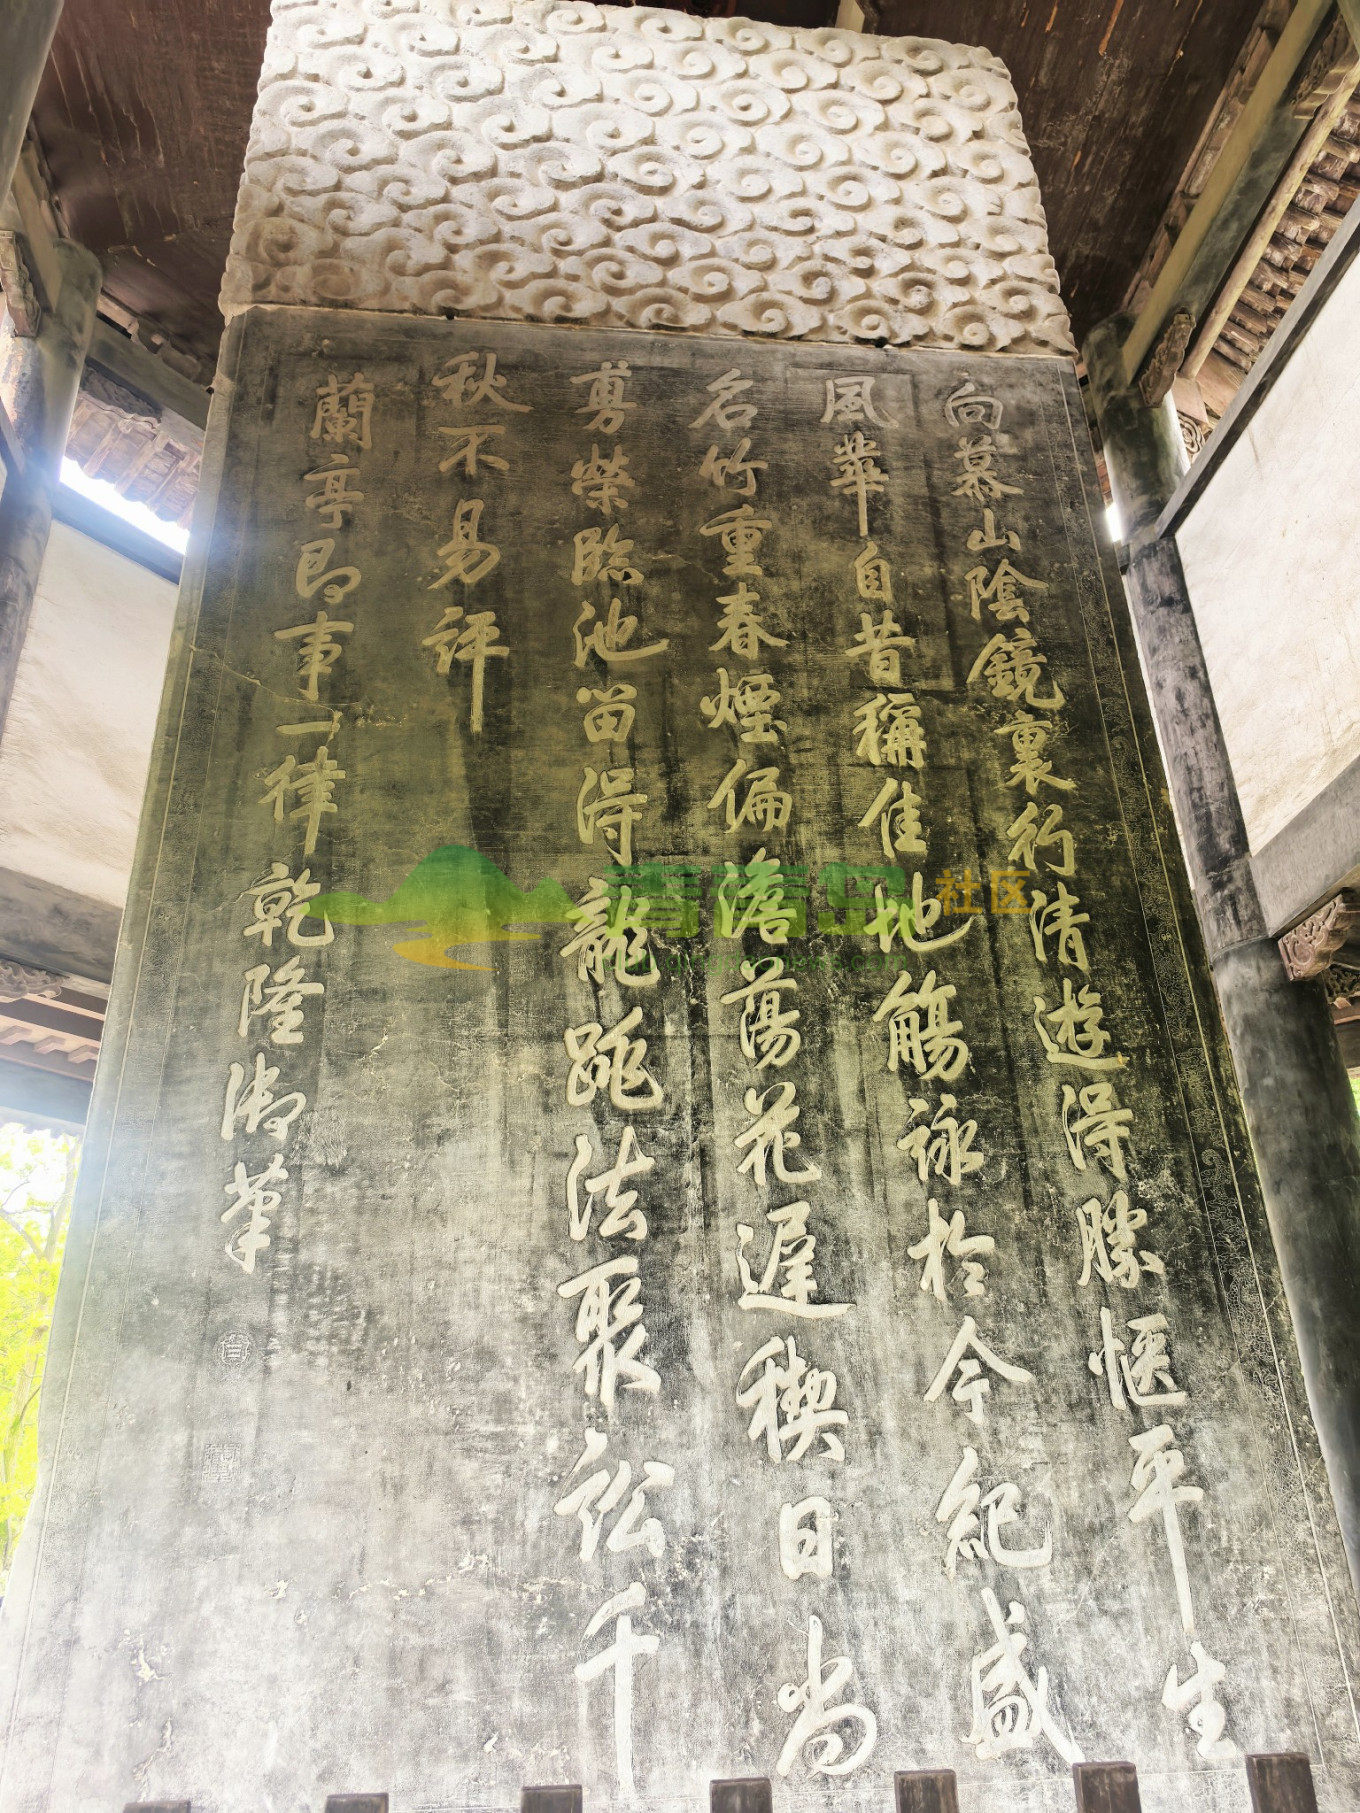 向慕山陰鏡裏行清遊得勝愜平生
風華自昔稱佳地觴詠於今紀盛
名竹重春煙偏澹蕩花遲禊日尚
剪榮臨池留得龍跳法聚訟千
秋不易評
蘭亭即事一律乾隆御筆
青青岛社区